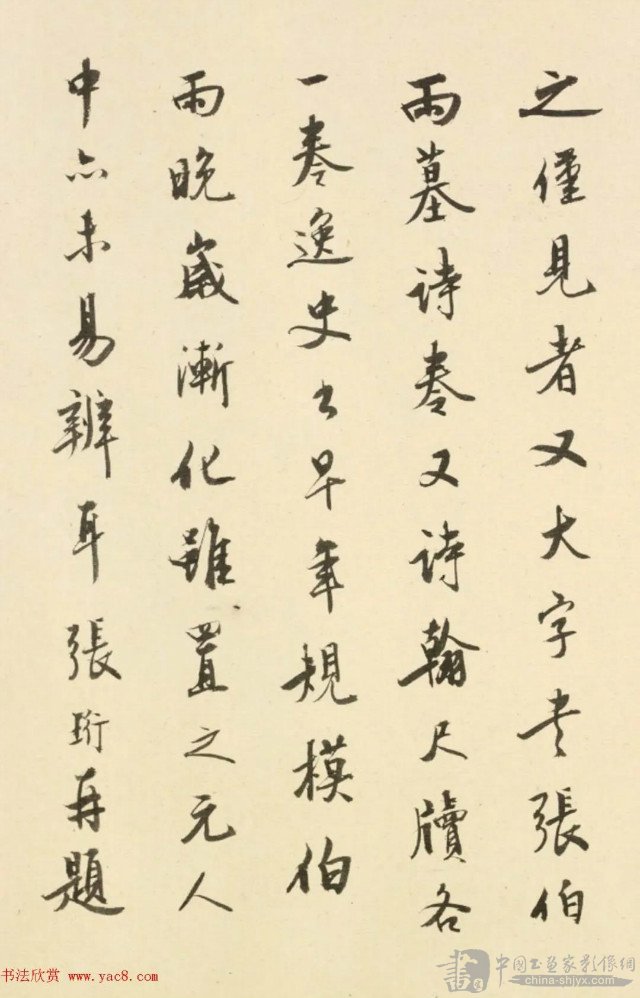 之僅見者又大字書張伯
雨墓詩卷又詩翰尺牘各
一卷逸史書早年規模伯
雨晚歲漸化雖置之元人
中亦未易辨耳張珩再題
书法欣赏 www.yac8.com
中國书画家影像網
china-shjyx.com